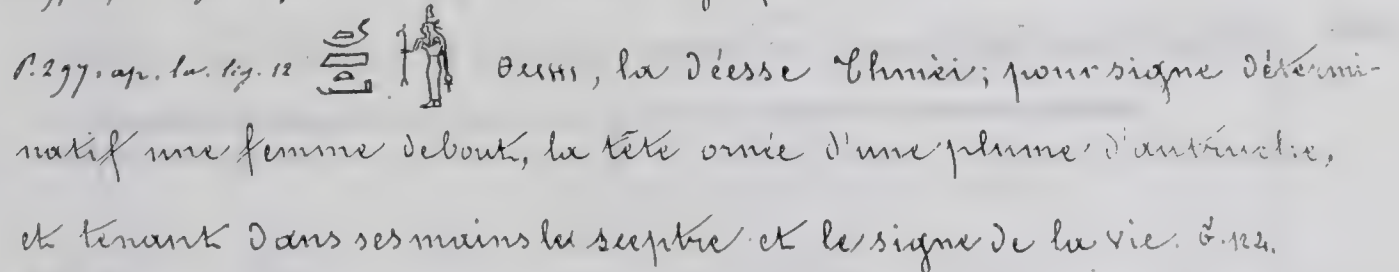 P. 297. ap. la. lig. 12 ⲑⲙⲏⲓ, la Déesse Thméi; pour signe détermi-
natif une femme debout, la tête ornée d'une plume d'autruche,
et tenant dans ses mains le sceptre et le signe de la vie. G. 122.